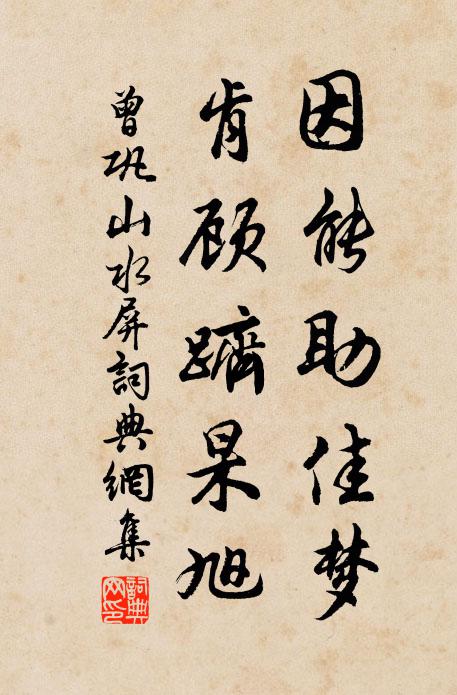 因能助佳梦
肯顾跻杲旭
曾巩山水屏詞典網集
詞典
网印